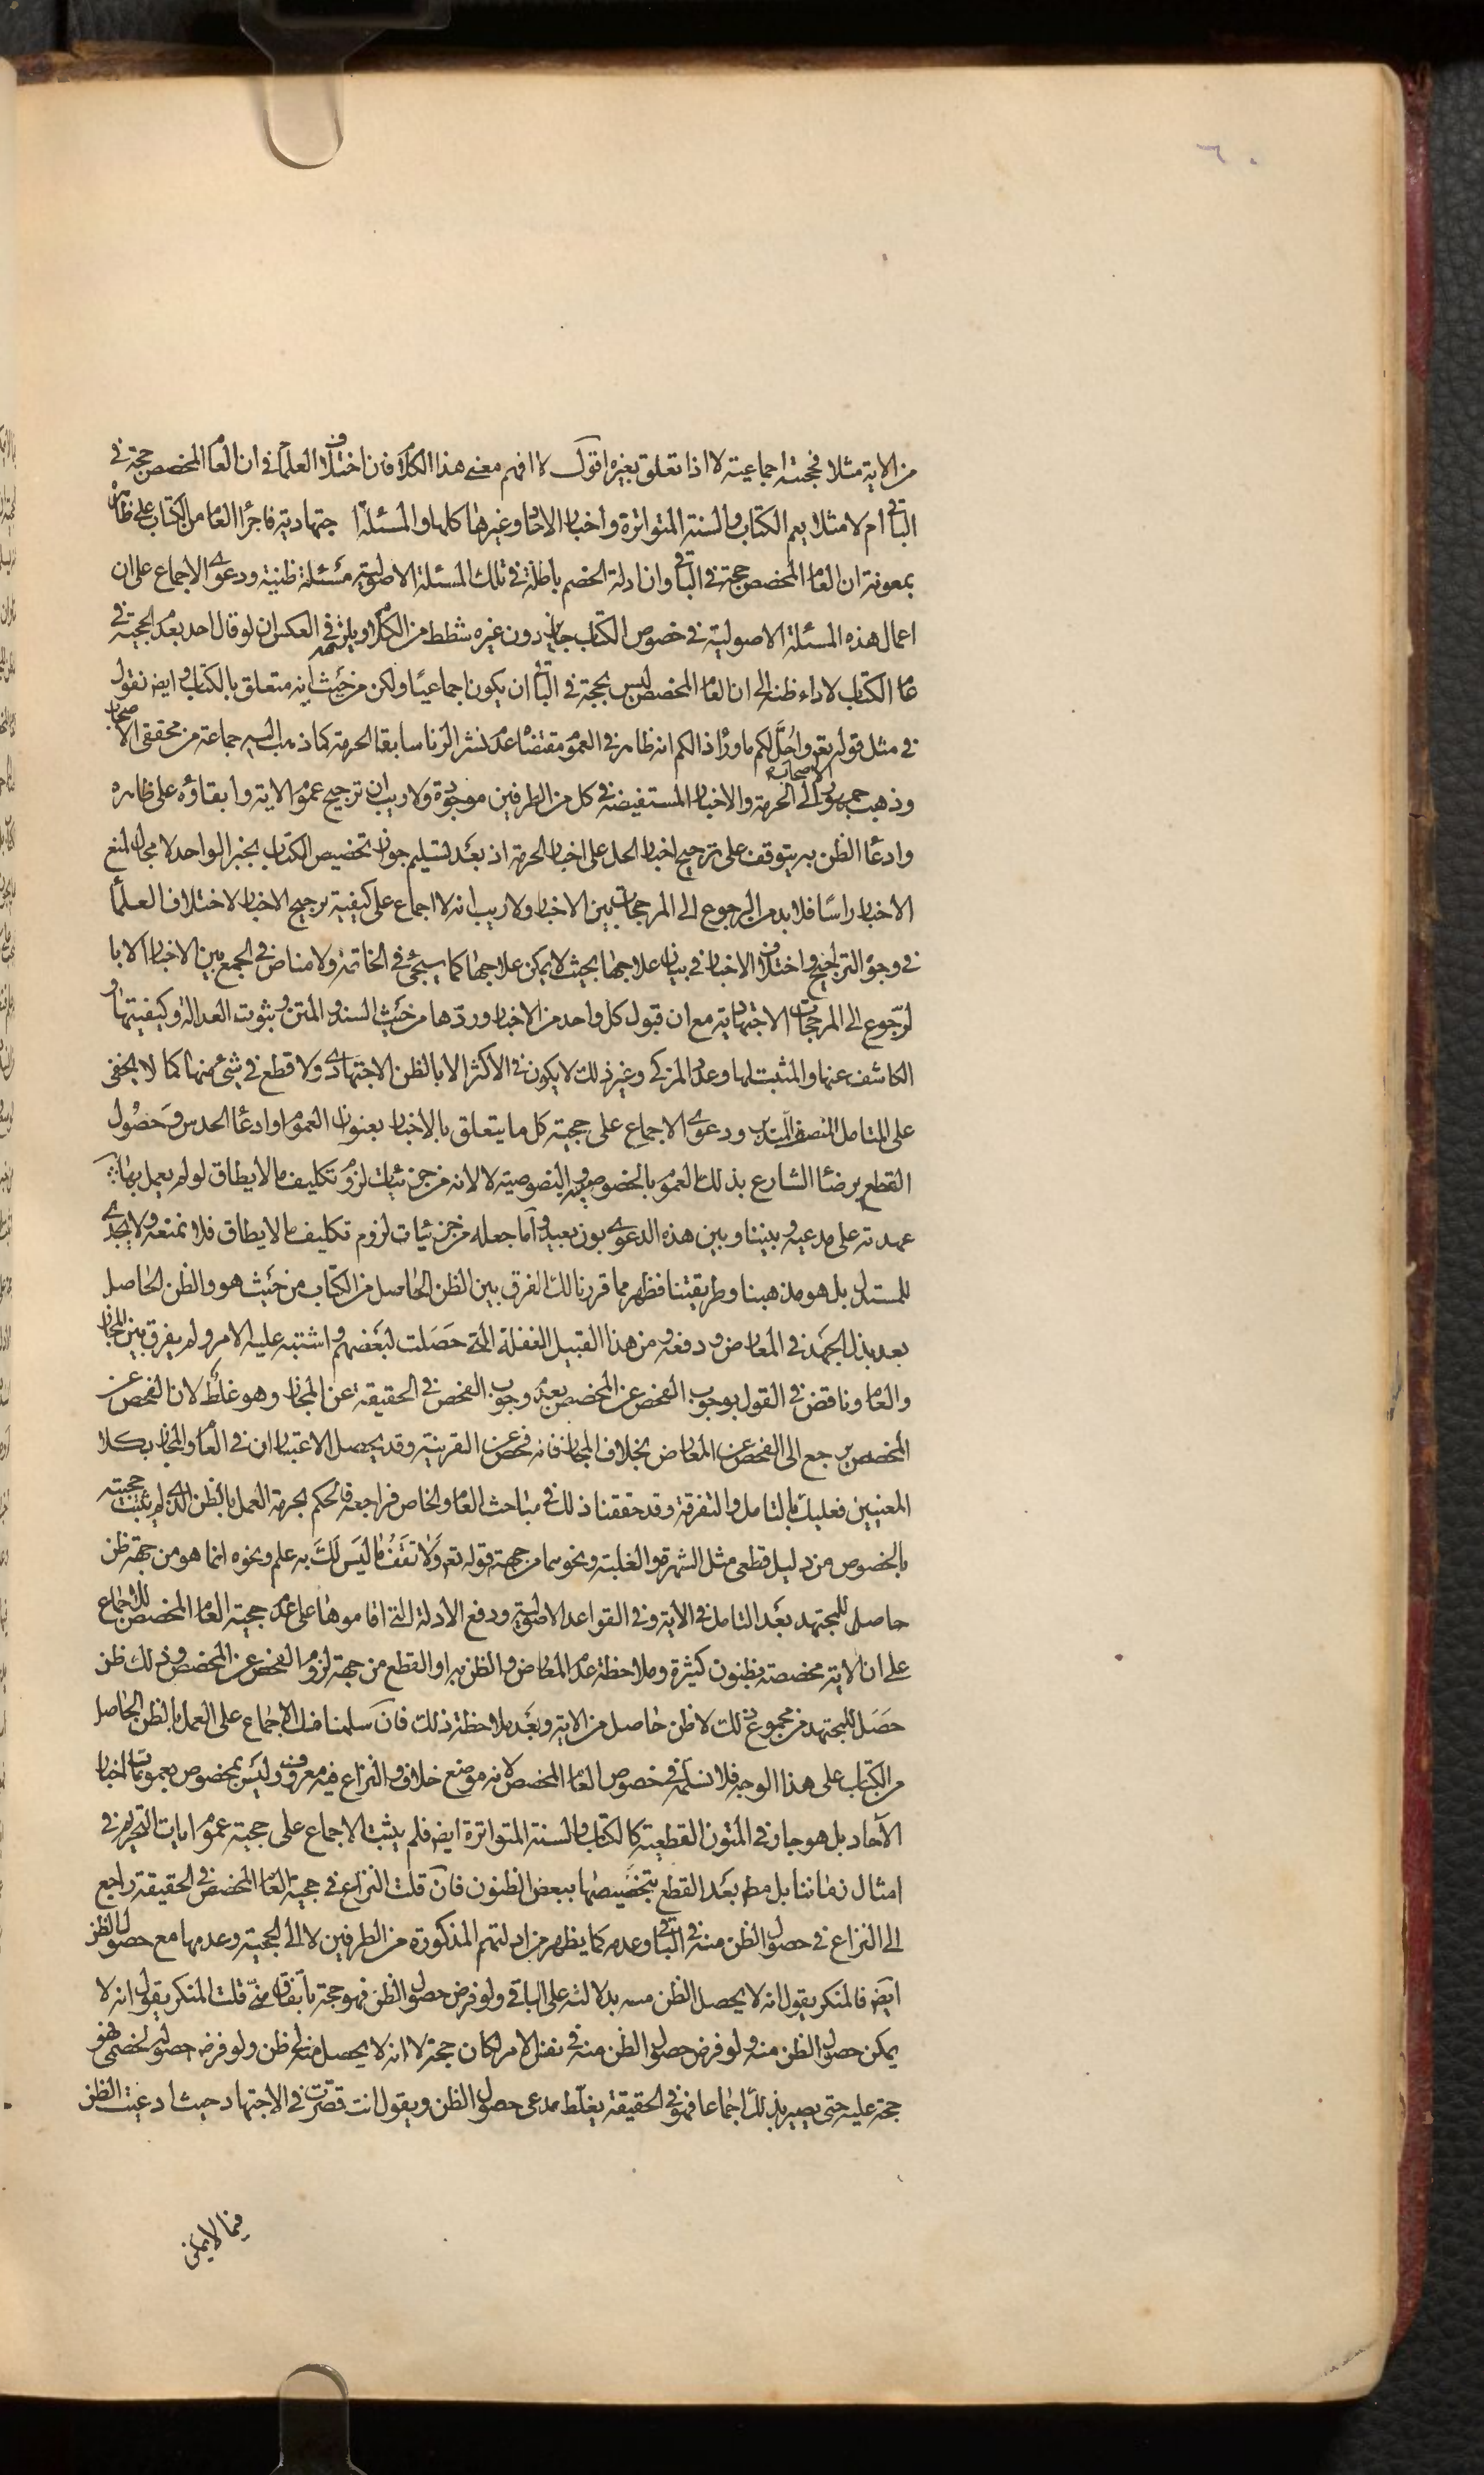 ٦٠
من الاية مثلا فحجيته اجماعية لا اذا تعلق بغيره اقول لا افهم معنى هذا الكلام فان اختلاف العلماء فى ان العام المخصص حجة فى
الباقى ام لا مثلا يعم الكتاب والسنة المتواترة واخبار الاحاد وغيرها كلها والمسئلة اجتهادية فاجراء العام من الكتاب على ظاهره
بمعونة ان العام المخصص حجة فى الباقى وان ادلة الخصم باطلة فى تلك المسئلة الاصولية مسئلة ظنية ودعوى الاجماع على ان
اعمال هذه المسئلة الاصولية فى خصوص الكتاب جايز دون غيره شطط من الكلام ويلزمه فى العكس ان لو قال احد بعدم الحجية فى
عام الكتاب لاداء ظنه الى ان العام المخصص ليس بحجة فى الباقى ان يكون اجماعيا ولكن من حيث انه متعلق بالكتاب وايضا نقول
فى مثل قوله تعه واحل لكم ما وراء ذالكم انه ظاهر فى العموم مقتضاه عدم نشر الزنا سابقا الحرمة كما ذهب اليه جماعة من محققى الاصحاب
وذهب جمهور الاصحاب الى الحرمة والاخبار المستفيضة فى كل من الطرفين موجودة ولا ريب ان ترجيح عموم الاية وابقاؤه على ظاهره
وادعاء الظن به يتوقف على ترجيح اخبار الحل على اخبار الحرمة اذ بعد تسليم جواز تخصيص الكتاب بخبر الواحد لا مجال لمنع
الاخبار راسا فلابد من الرجوع الى المرجحات بين الاخبار ولا ريب انه لا اجماع على كيفية ترجيح الاخبار لاختلاف العلماء
فى وجوه التراجيح واختلاف الاخبار فى بيان علاجها بحيث لا يمكن علاجها كما سيجئ فى الخاتمة ولا مناص فى الجمع بين الاخبار الا با
لرجوع الى المرجحات الاجتهادية مع ان قبول كل واحد من الاخبار وردها من حيث السند والمتن وثبوت العدالة وكيفيتها و
الكاشف عنها والمثبت لها وعدد المزكى وغير ذلك لا يكون فى الاكثر الا بالظن الاجتهادى ولا قطع فى شئ منها كما لا يخفى
على المتامل المنصف المتدبر ودعوى الاجماع على حجية كل ما يتعلق بالاخبار بعنوان العموم او ادعاء الحدس وحصول
القطع برضاء الشارع بذلك العموم بالخصوص فيه النصوصية لا لانه من جزئيات لزوم تكليف ما لا يطاق لو لم يعمل بها
عهدته على مدعيه وبيننا وبين هذه الدعوى بون بعيد واما جعله من جزئيات لزوم تكليف ما لا يطاق فلا نمنعه ولا يجدى
للمستدل بل هو مذهبنا وطريقتنا فظهر مما قررنا لك الفرق بين الظن الحاصل من الكتاب من حيث هو والظن الحاصل
بعد بذل الجهد فى المعارض ودفعه ومن هذا القبيل الغفلة التى حصلت لبعضهم واشتبه عليه الامر ولم يفرق بين المجاز
والعام وناقض فى القول بوجوب الفحص عن المخصص بعدم وجوب الفحص فى الحقيقة عن المجاز وهو غلط لان الفحص عن
المخصص يرجع الى الفحص عن المعارض بخلاف المجاز فانه فحص عن القرينة وقد يحصل الاعتباران فى العام والمجاز بكلا
المعنيين فعليك بالتامل والتفرقة وقد حققنا ذلك فى مباحث العام والخاص فراجعه فالحكم بحرمة العمل بالظن الذى لم يثبت حجيته
بالخصوص من دليل قطعى مثل الشهرة والغلبة ونحوهما من جهة قوله تعه ولا تقف ما ليس لك به علم ونحوه انما هو من جهة ظن
حاصل للمجتهد بعد التامل فى الاية وفى القواعد الاصولية ودفع الادلة التى اقاموها على عدم حجية العام المخصص للاجماع
على ان الاية مخصصة بظنون كثيرة وملاحظة عدم المعارض والظن به او القطع من جهة لزوم الفحص عن المخصص وذلك ظن
حصل للمجتهد من مجموع ذلك لا ظن حاصل من الاية وبعد ملاحظة ذلك فان سلمنا ذلك الاجماع على العمل بالظن الحاصل
من الكتاب على هذا الوجه فلا نسلمه فى خصوص العام المخصص لانه موضع خلاف والنزاع فيه معروف وليس بمخصوص بعمومات اخبار
الآحاد بل هو جار فى المتون القطعية كالكتاب والسنة المتواترة ايض فلم يثبت الاجماع على حجية عموم ايات التحريم فى
امثال زماننا بل مطه بعد القطع بتخصيصها ببعض الظنون فان قلت النزاع فى حجية العام المخصص فى الحقيقة راجع
الى النزاع فى حصول الظن منه فى الباقى وعدمه كما يظهر من ادلتهم المذكورة من الطرفين لا الى الحجية وعدمها مع حصول الظن
ايض فالمنكر يقول انه لا يحصل الظن منه بدلالته على الباقى ولو فرض حصول الظن فهو حجة باتفاق منى قلت المنكر يقول انه لا
يمكن حصول الظن منه ولو فرض حصول الظن منه فى نفس الامر لكان حجة لا انه لا يحصل منه لى ظن ولو فرض حصوله لخصمى فهو
حجة عليه حتى يصير بذلك اجماعا فهو فى الحقيقة يغلط مدعى حصول الظن ويقول انت قصرت فى الاجتهاد حيث ادعيت الظن
فيما لا يمكن